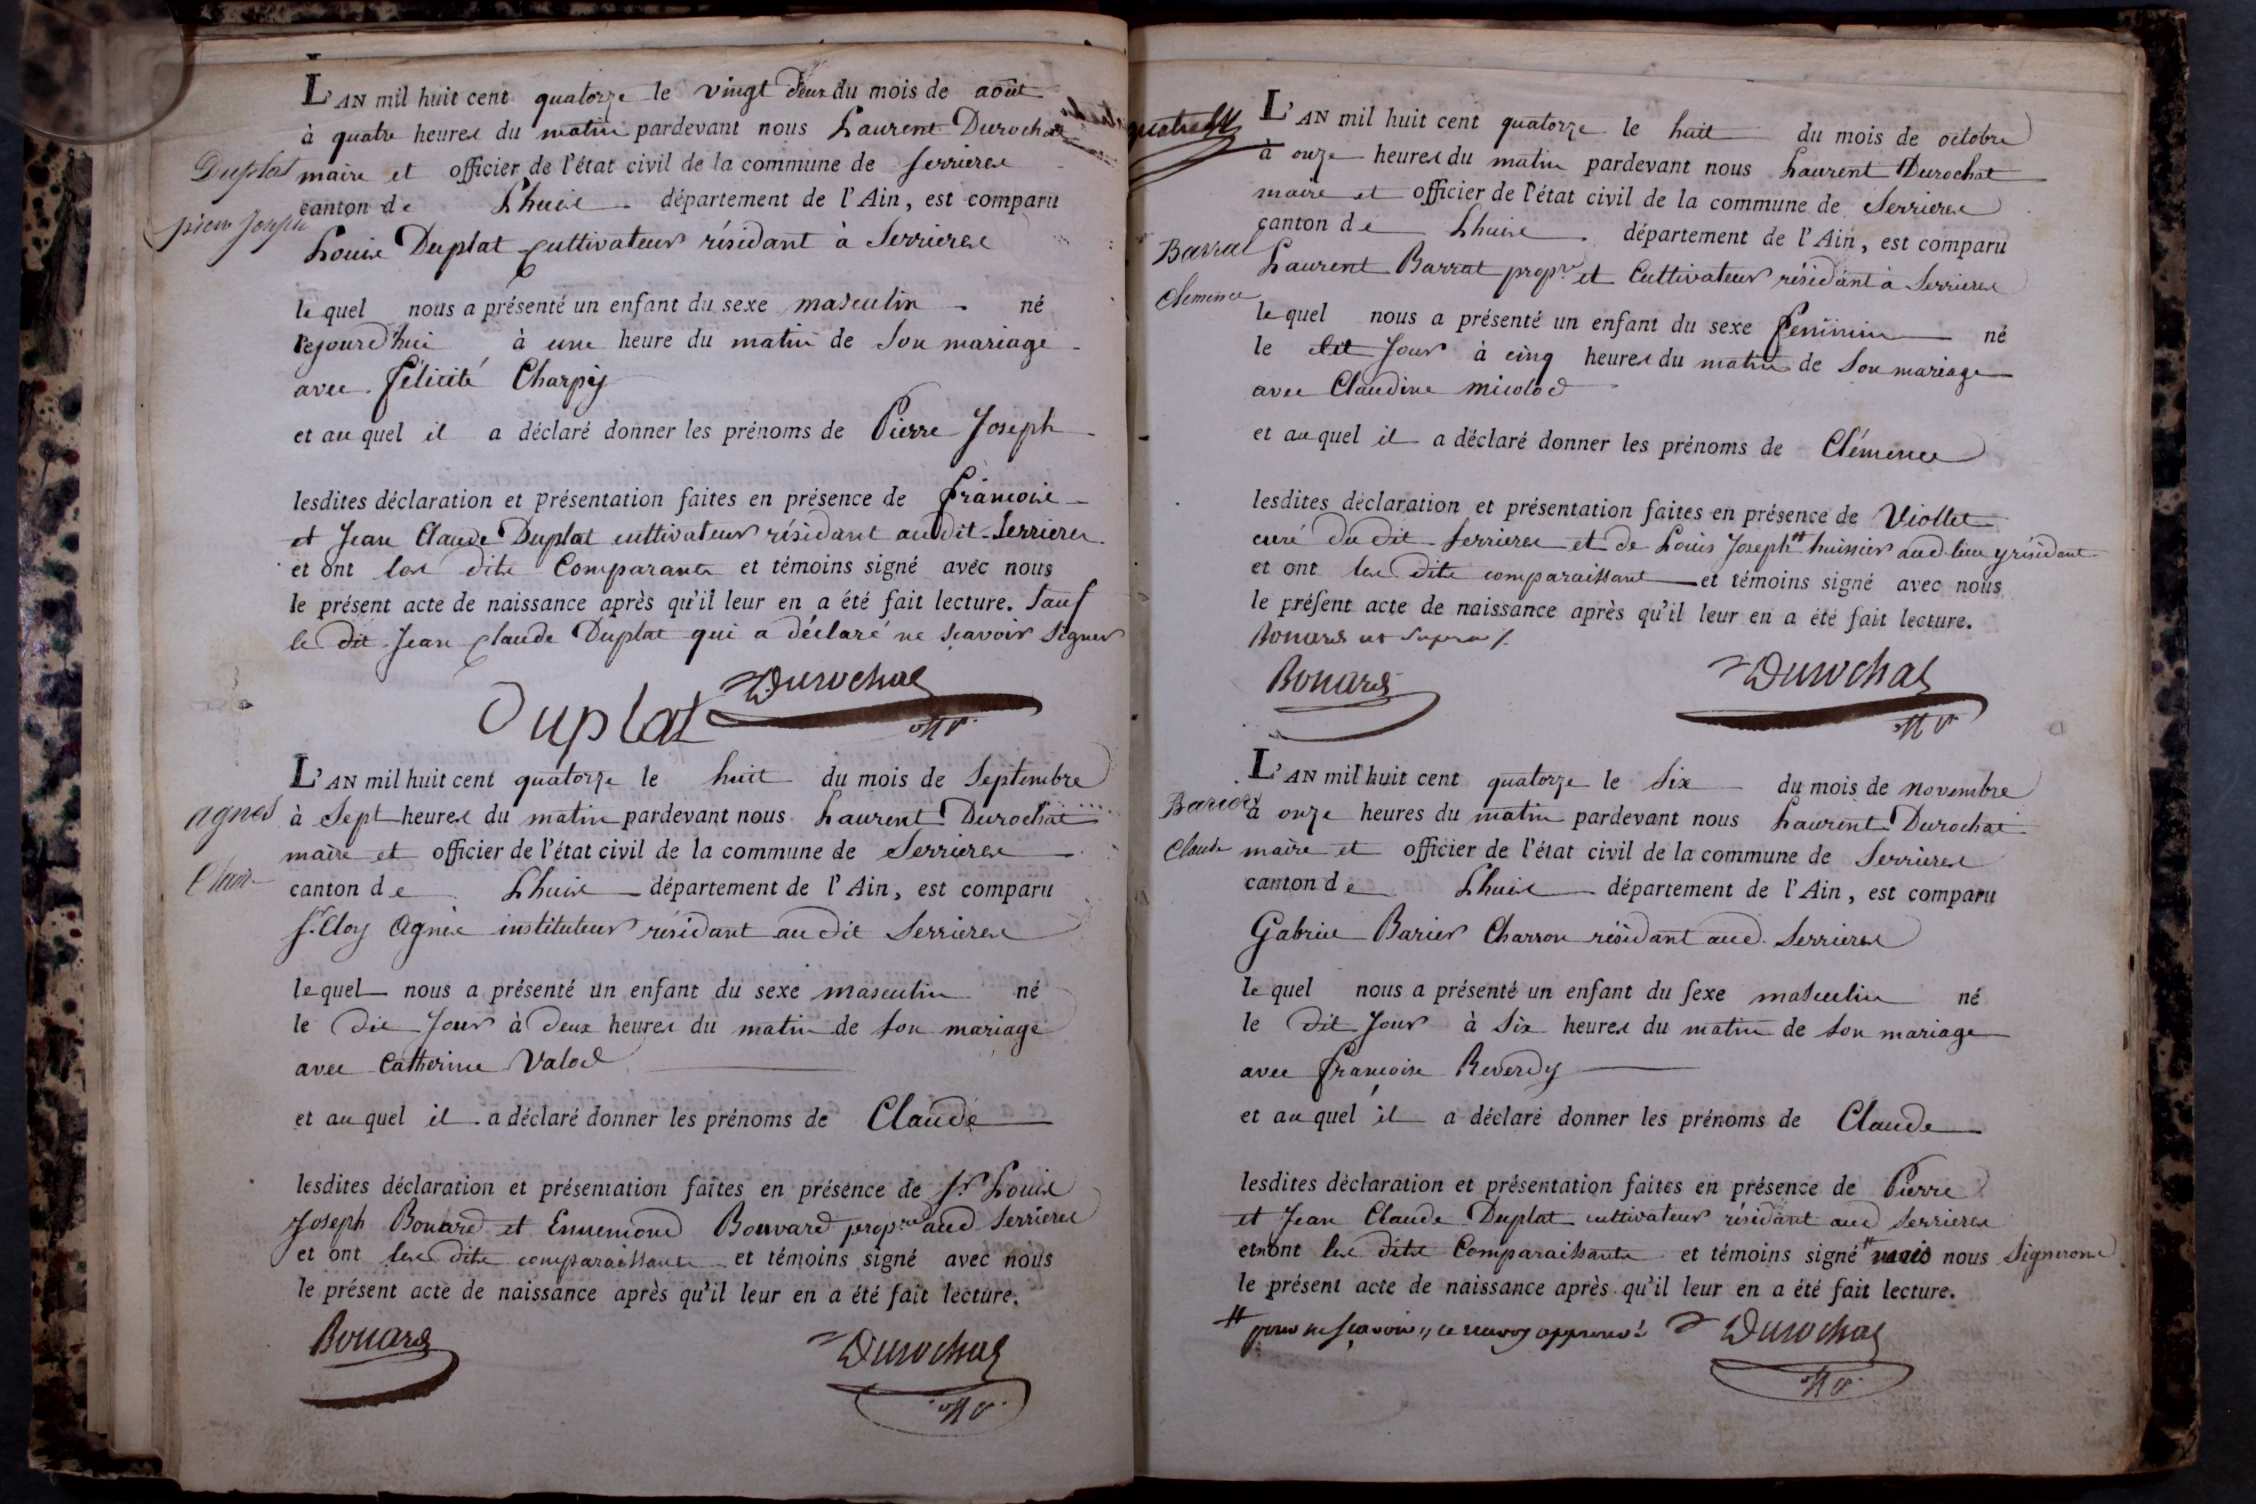 L'AN mil huit cent quatorze le vingt deux du mois de août
à quatre heures du matin pardevant nous Laurent Durochat
Duplat
maire et officier de l'état civil de la commune de Serrieres
pierre Joseph
canton de Lhuis département de l'Ain, est comparu
Louis Duplat Cultivateur résidant à Serrieres
lequel nous a présenté un enfant du sexe masculin né
cejourd'hui à une heure du matin de Son mariage
avec félicité Charpey
et auquel il a déclaré donner les prénoms de Pierre Joseph
lesdites déclaration et présentation faites en présence de françois
et Jean Claude Duplat cultivateur résidant audit Serrieres
et ont les dits Comparants et témoins signé avec nous
le présent acte de naissance après qu'il leur en a été fait lecture. Sauf
le dit Jean Claude Duplat qui a déclaré ne sçavoir Signer
Duplat Durochat
L'AN mil huit cent quatorze le huit du mois de Septembre
agnes
à Sept heures du matin pardevant nous Laurent Durochat
maire et officier de l'état civil de la commune de Serrieres
canton de Lhuis département de l'Ain, est comparu
Sr. Cloy Agnès instituteur résidant au dit Serrieres
lequel nous a présenté un enfant du sexe masculin né
le dit Jour à deux heures du matin de son mariage
avec Catherine Valod
et auquel il a déclaré donner les prénoms de Claude
lesdites déclaration et présentation faites en présence de Sr. Louis
Joseph Bouard et Ennemond Bouvard propre. aud Serrieres
et ont les dits comparaissants et témoins signé avec nous
le présent acte de naissance après qu'il leur en a été fait lecture.
Bouard Durochat
L'AN mil huit cent quatorze le huit du mois de octobre
à onze heures du matin pardevant nous Laurent Durochat
maire et officier de l'état civil de la commune de Serrieres
canton de Lhuis département de l'Ain, est comparu
Barral
Laurent Barrat propre. et Cultivateur résidant à Serrieres
Clemence
lequel nous a présenté un enfant du sexe feminin né
le dit Jour à cinq heures du matin de Son mariage
avec Claudine micolod
et auquel il a déclaré donner les prénoms de Clémence
lesdites déclaration et présentation faites en présence de Viollet
curé du dit Serrieres et de Louis Joseph # huissier aud lieu y résidant
et ont les dits comparaissant et témoins signé avec nous
le présent acte de naissance après qu'il leur en a été fait lecture.
Bouard ut Supra
Bouard Durochat
L'AN mil huit cent quatorze le Six du mois de novembre
Barier
à onze heures du matin pardevant nous Laurent Durochat
Claude
maire et officier de l'état civil de la commune de Serrieres
canton de Lhuis département de l'Ain, est comparu
Gabriel Barier Charron résidant aud. Serrieres
lequel nous a présenté un enfant du sexe masculin né
le dit Jour à Six heures du matin de son mariage
avec françoise Reverdy
et auquel il a déclaré donner les prénoms de Claude
lesdites déclaration et présentation faites en présence de Pierre
et Jean Claude Duplat cultivateur résidant aud Serrieres
et n'ont les dits Comparaissants et témoins signé # mais nous Signerons
le présent acte de naissance après qu'il leur en a été fait lecture.
# pour ne sçavoir, ce renvoy approuvé Durochat